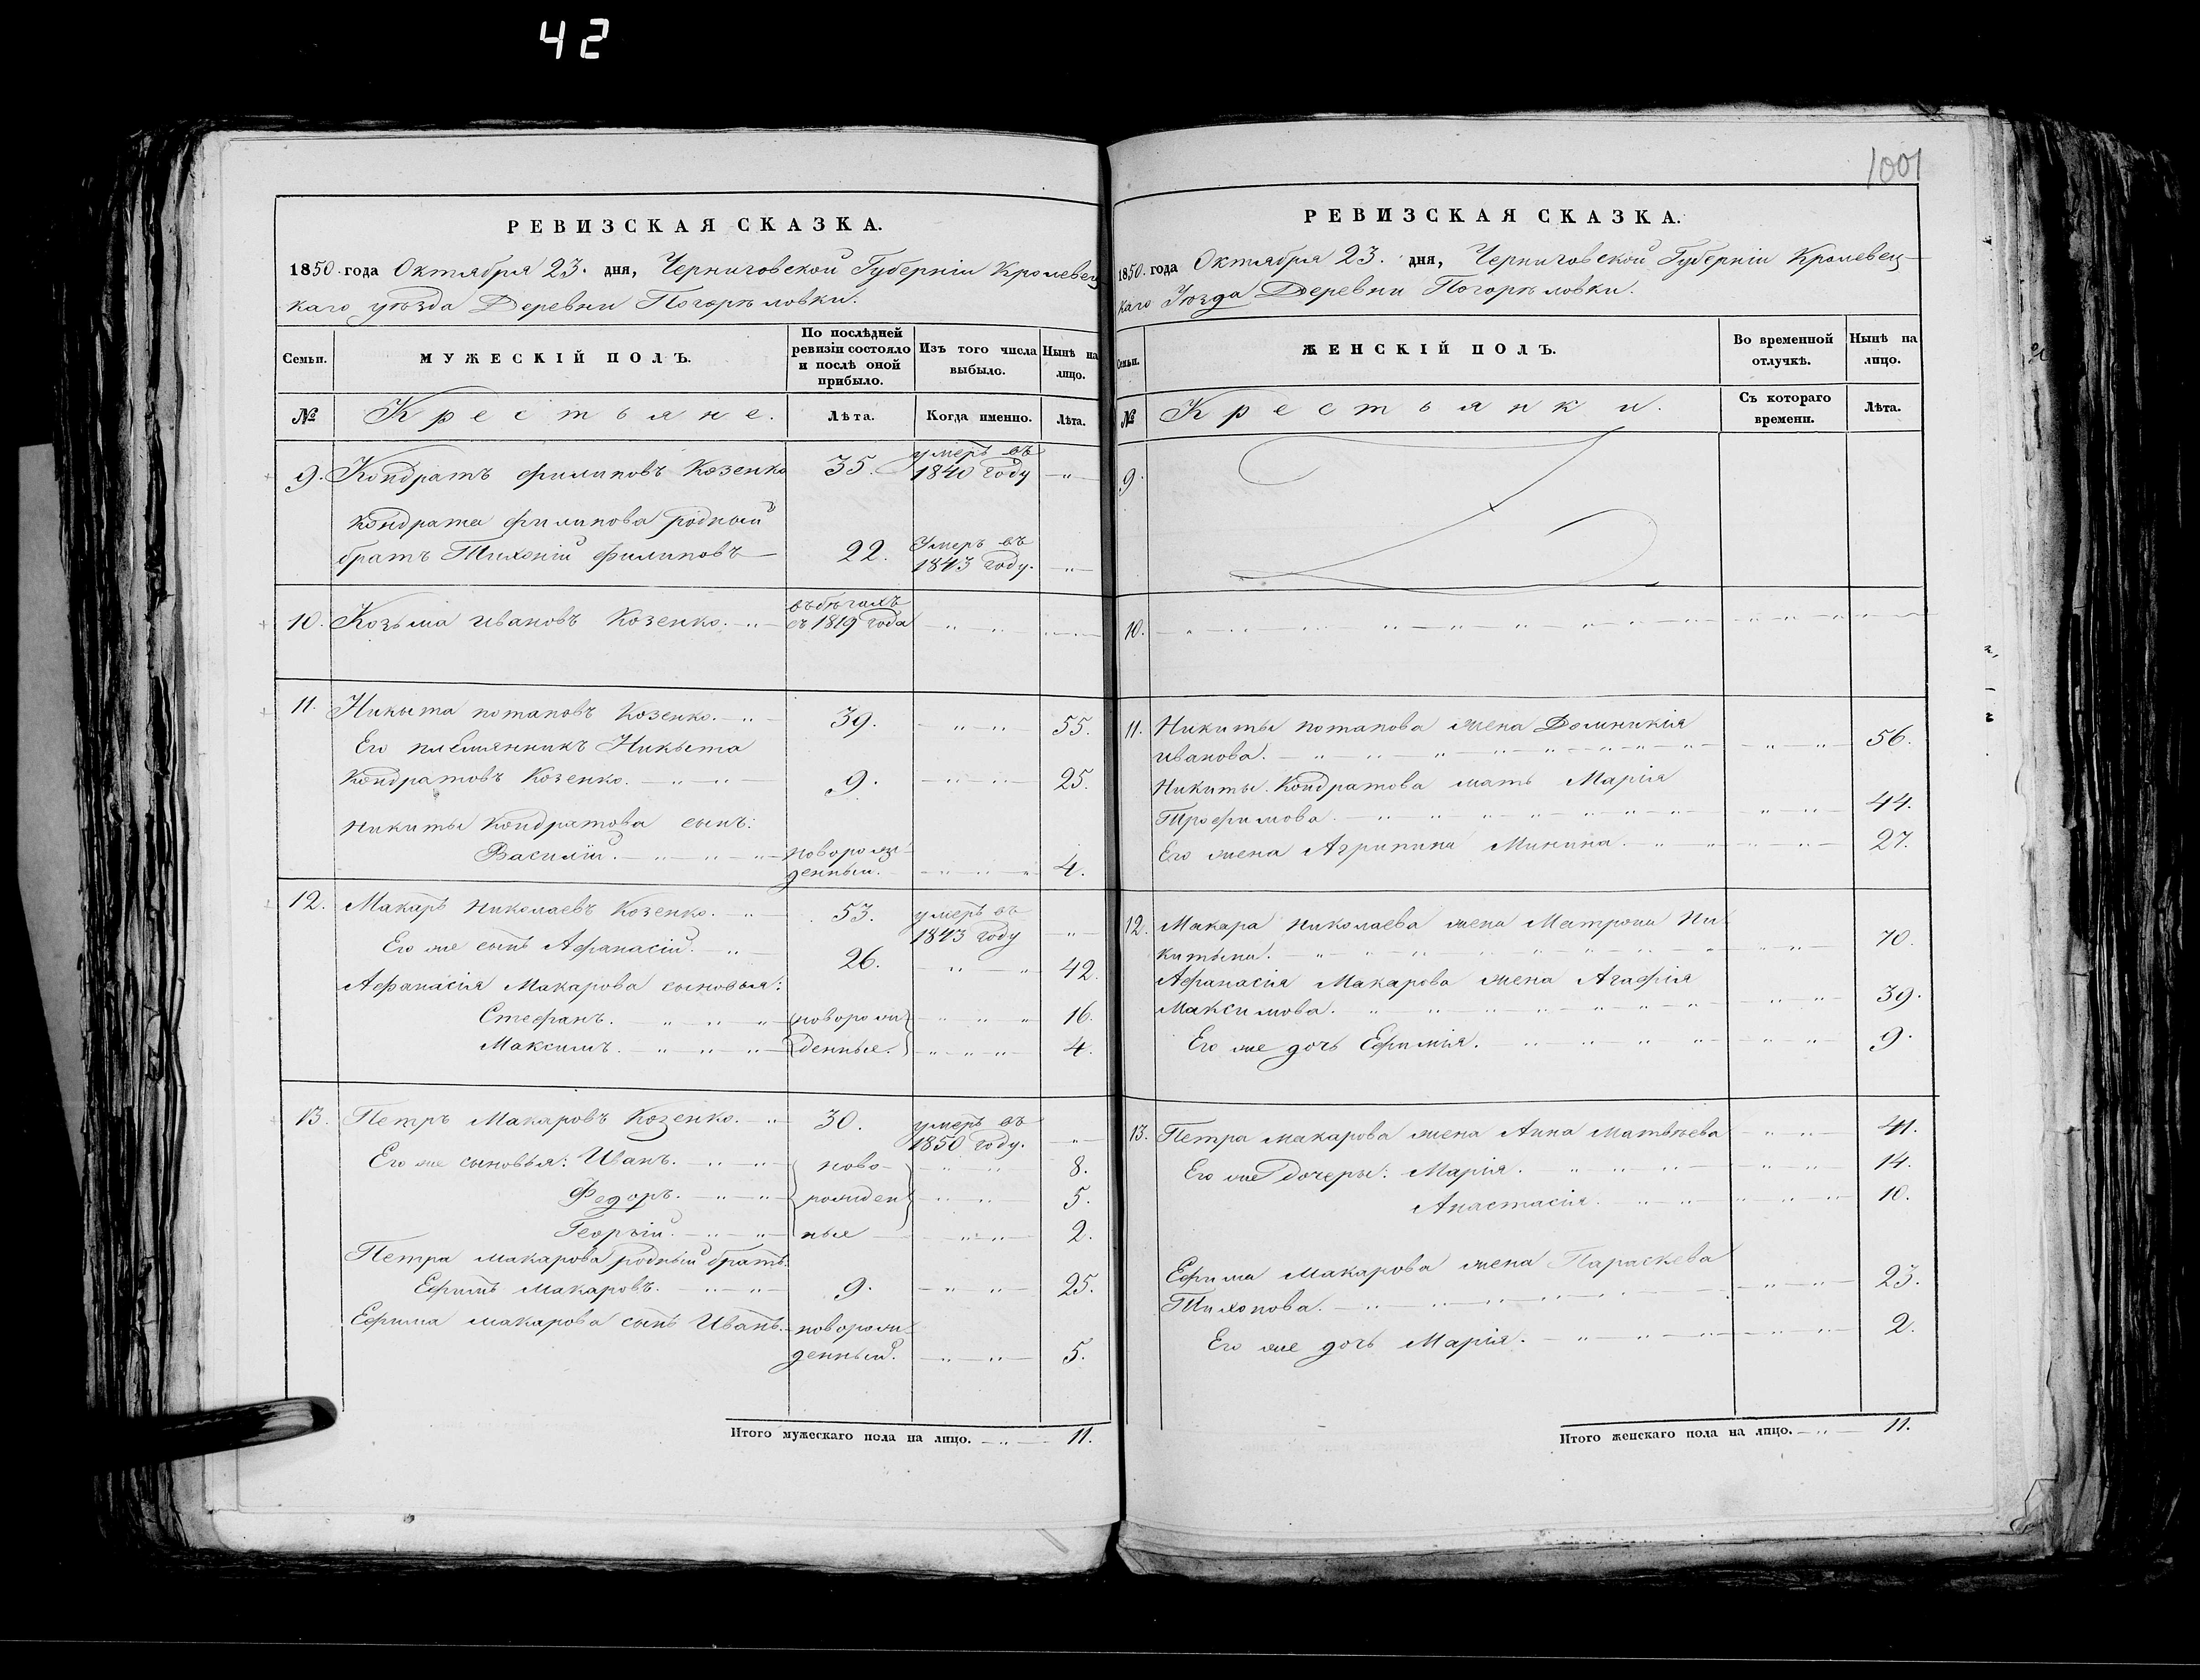 42
1001
РЕВИЗСКАЯ СКАЗКА.
1850 года Октября 23. дня, Черниговской Губернiи Кролевец-
каго уѣзда Деревни Погорѣловки.
Семьи.
МУЖЕСКІЙ ПОЛЪ.
По послѣдней ревизіи состояло и послѣ оной прибыло.
Изъ того числа выбыло.
Нынѣ на лицо.
№
Крестьяне.
Лѣта.
Когда именно.
Лѣта.
9. Кондратъ филиповъ Козенко 35. умеръ въ 1840 году — „ —
Кондрата филипова родный
братъ Тихоній филиповъ — 22. Умеръ въ 1843 году. — „ —
10. Козьма ивановъ Козенко. — „ — въ бѣгахъ съ 1819 года — „ — „ —
11. Никыта потаповъ Козенко. — „ — 39. — „ — „ — 55.
Его племянникъ Никыта
Кондратовъ Козенко. — „ — „ — 9. — „ — „ — 25.
Никиты Кондратова сынъ:
Василій. — „ — „ — новорож-
денный. — „ — „ 4.
12. Макаръ Николаевъ Козенко. — „ — 53. умеръ въ 1843 году — „ —
Его же сынъ Афанасій. — „ — 26. — „ — „ 42.
Афанасія Макарова сыновья:
Стефанъ. — „ — „ — „ новорож- — „ — „ 16.
Максимъ. — „ — „ — „ денные. — „ — „ — 4.
13. Петръ Макаровъ Козенко. — „ 30. умеръ въ 1850 году. — „ —
Его же сыновья: Иванъ. — „ — „ ново- — „ — „ 8.
Федоръ. — „ — „ рожден — „ — „ 5.
Георгій. — „ — „ ные — „ — „ 2.
Петра макарова родный братъ:
Ефимъ макаровъ. — „ — „ — 9. — „ — „ — 25.
Ефима макарова сынъ Иванъ. — новорож-
денный. — „ — „ — 5.
Итого мужескаго пола на лицо. — „ — 11.
РЕВИЗСКАЯ СКАЗКА.
1850 года Октября 23. дня, Черниговской Губернiи Кролевец-
каго Уѣзда Деревни Погорѣловки.
Семьи.
ЖЕНСКІЙ ПОЛЪ.
Во временной отлучкѣ.
Нынѣ на лицо.
№
Крестьянки.
Съ котораго времени.
Лѣта.
9.
10. — „ — „ — „ — „ — „ —
11. Никиты потапова жена Домникія
иванова. — „ — „ — „ — 56.
Никиты Кондратова мать Марія
Трофимова. — „ — „ — „ — 44.
Его жена Агрипина Минина. — „ — „ — 27.
12. Макара Николаева жена Матрона Ни-
китина. — „ — „ — „ — 70.
Афанасія Макарова жена Агафія
Максимова. — „ — „ — „ — 39.
Его же дочь Ефимія. — „ — „ — 9.
13. Петра макарова жена Анна матвѣева — „ — 41.
Его же дочеры: Марія. — „ — „ — 14.
Анастасія. — „ — „ — 10.
Ефима макарова жена Параскева
Тихонова. — „ — „ — „ — 23.
Его же дочь Марія. — „ — „ — 2.
Итого женскаго пола на лицо. — „ — 11.